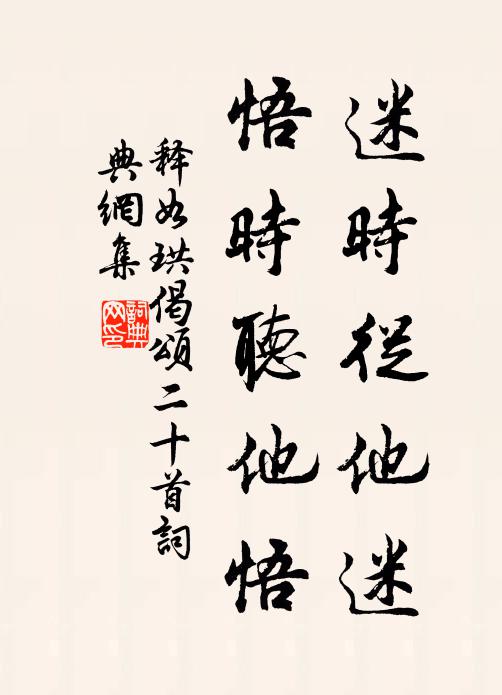 迷時從他迷
悟時聽他悟
释如珙偈頌二十首詞
典網集
詞典網印